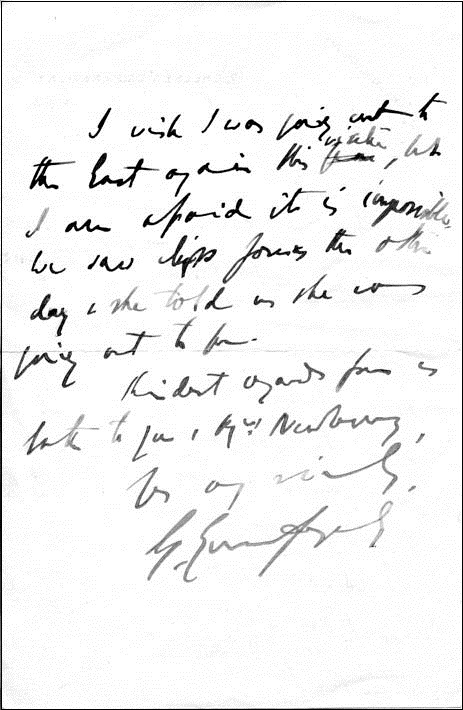 I wish I was going out to
the East again this winter, but
I am afraid it is impossible.
We saw Miss Jones the other
day & she told us she was
going out to you.
Kindest regards from us
both to you & Mrs Newberry,
Yrs very sincerely,